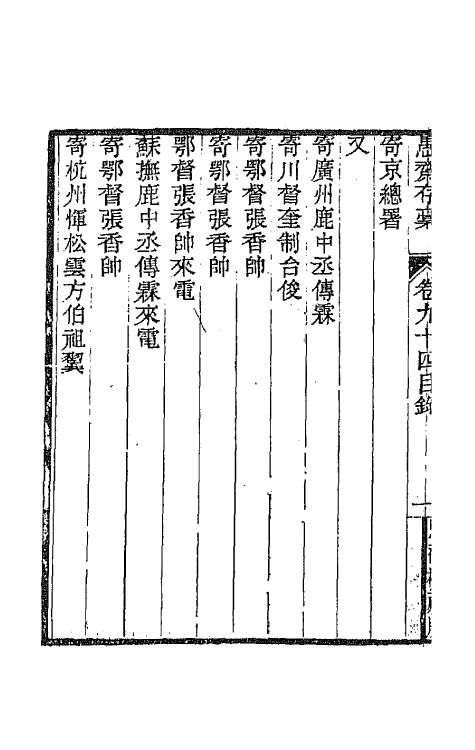 愚齋存稾 卷九十四目錄 一
寄京總署
又
寄廣州鹿中丞傳霖
寄川督奎制台俊
寄鄂督張香帥
寄鄂督張香帥
鄂督張香帥來電
蘇撫鹿中丞傳霖來電
寄鄂督張香帥
寄杭州惲松雲方伯祖翼